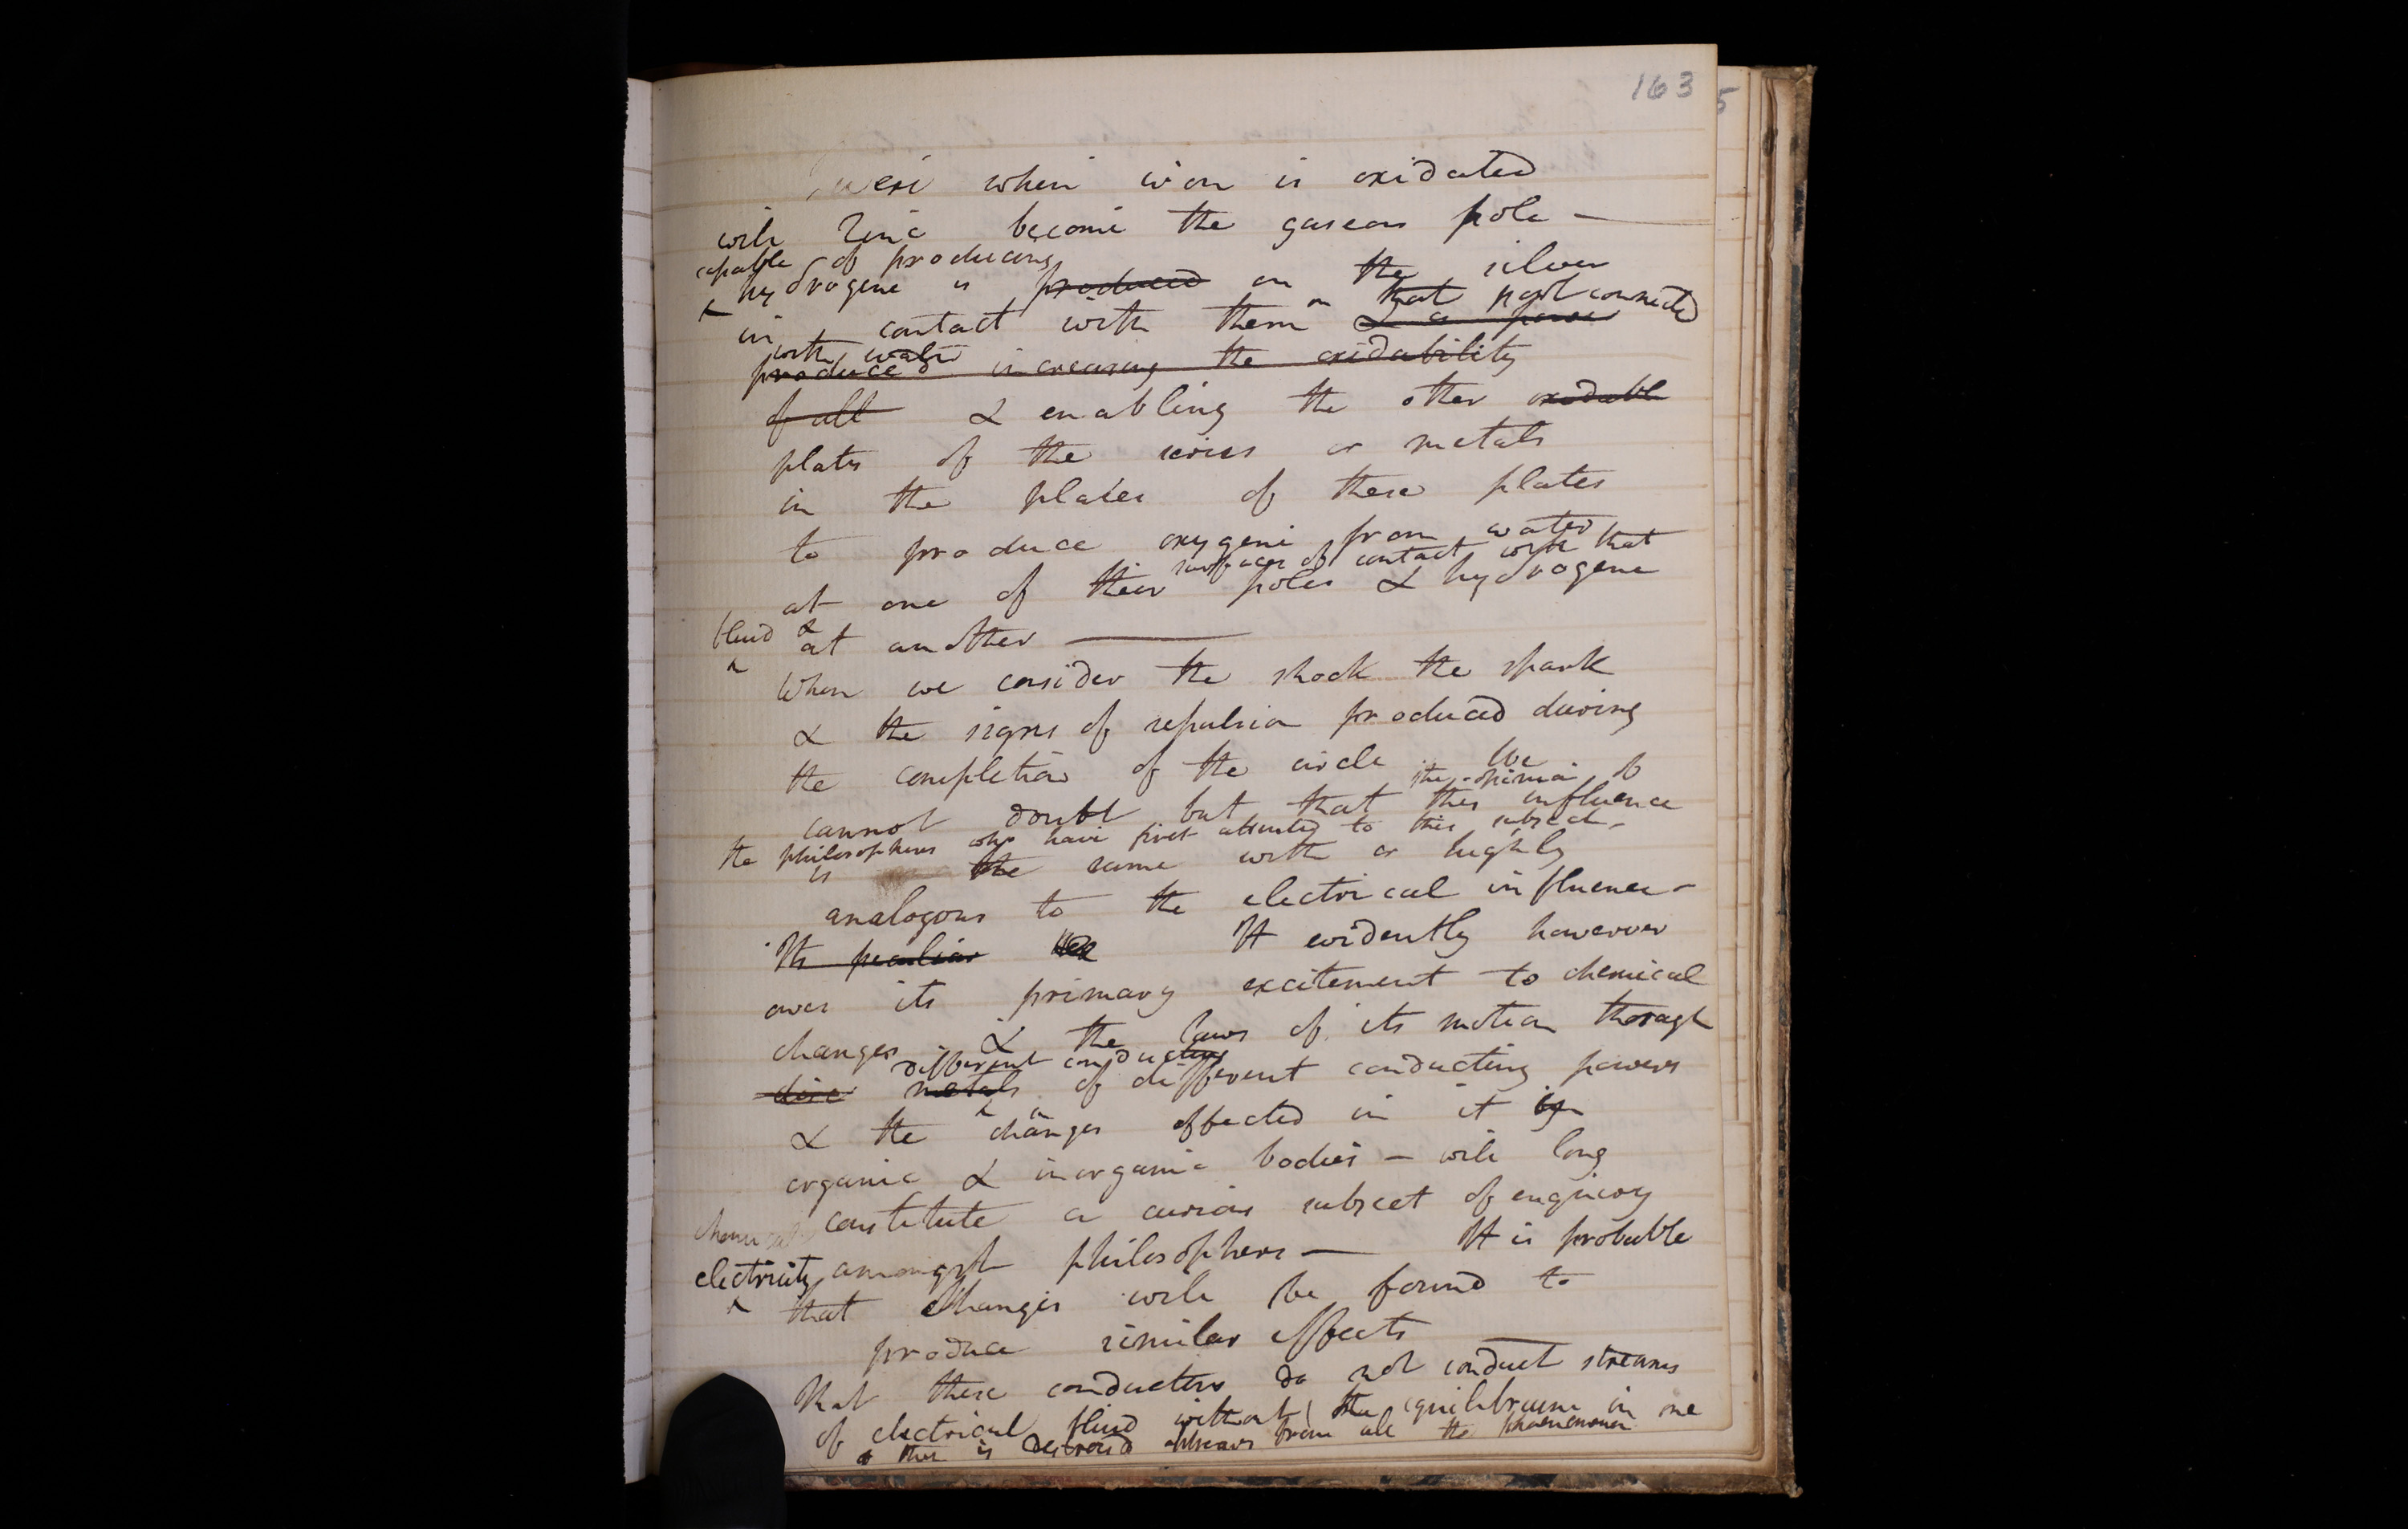 163
5
Queri when iron is oxidated
will Zinc become the gaseous pole —
capable of producing
hydrogene is produced on the silver
in contact with them on that part connected
& a power
with water
produced increasing the oxidability
of all & enabling the other oxidable
plates of the series or metals
in the places of these plates
to produce oxygene from water
surfaces of contact with that
at one of their poles & hydrogene
fluid & at another —
When we consider the shock the spark
& the signs of repulsion produced during
the completion of the circle We
the opinion of
cannot doubt but that this influence
the philosophers who have first attended to this subject
is the same with or highly
analogous to the electrical influence —
Its peculiar It evidently however
owes its primary excitement to chemical
changes & the laws of its motion through
different conducting
metals of different conducting powers
& the changes effected in it by
in
organic & inorganic bodies — will long
constitute a curious subject of enquiry
chemical
electricity amongst philosophers — It is probable
that changes will be found to
produce similar effects
That these conductors do not conduct streams
of electrical fluid without the equilibrium in one
& this is destroied appears from all the phaenomena